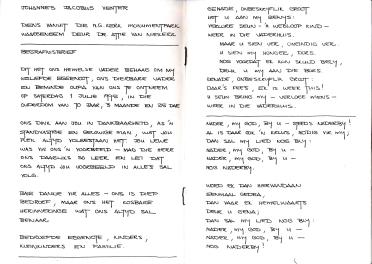 JOHANNES JACOBUS VENTER
DIENS VANUIT DIE N.G. KERK MONUMENTPARK
WAARGENEEM DEUR DR. ATTIE VAN NIEKERK
BEGRAFNISBRIEF
DIT HET ONS HEMELSE VADER BEHAAG OM MY
GELIEFDE EGGENOOT, ONS DIERBARE VADER
EN BEMINDE OUPA VAN ONS TE ONTNEEM
OP SATERDAG 1 JULIE 1995, IN DIE
OUDERDOM VAN 70 JAAR, 3 MAANDE EN 25 DAE
ONS DINK AAN JOU IN DANKBAARHEID, AS 'N
STANDVASTIGE EN GELOWIGE MAN, WAT JOU
PLEK ALTYD VOLGESTAAN HET. JOU LEWE
WAS VIR ONS 'N VOORBEELD - MAG DIE HERE
ONS DAARUIT SO LEER EN LEI DAT
ONS ALTYD JOU VOORBEELD IN ALLES SAL
VOLG.
BAIE DANKIE VIR ALLES - ONS IS DIEP
BEDROEF, MAAR ONS HET KOSBARE
HERINNERINGE WAT ONS ALTYD SAL
BEWAAR.
BEDROEFDE EGGENOTE, KINDERS,
KLEINKINDERS EN FAMILIE.
GENADE, ONBESKRYFLIK GROOT
HET U AAN MY BEWYS:
VERLORE SEUN - 'N WEGLOOP KIND -
WEER IN DIE VADERHUIS.
MAAR U SIEN VER, ONEINDIG VER.
U SIEN MY HONGER, DORS.
NOG VOORDAT EK KON SKULD BELY,
DRUK U MY AAN DIE BORS.
GENADE, ONBESKRYFLIK GROOT:
DAAR'S FEES, EK IS WEER TUIS!
U SEUN BRING MY - VERLORE MENS -
WEER IN DIE VADERHUIS.
NADER, MY GOD, BY U - STEEDS NADERBY!
AL IS DAAR OOK 'N KRUIS, NODIG VIR MY,
DAN SAL MY LIED NOG BLY:
NADER, MY GOD, BY U -
NADER, MY GOD, BY U -
NOG NADERBY!
WORD EK DAN HIERVANDAAN
EENMAAL GEDRA,
DAN WAAR EK HEMELWAARTS
DEUR U GENA;
DAN SAL MY LIED NOG BLY:
NADER, MY GOD, BY U -
NADER, MY GOD, BY U -
NOG NADERBY!